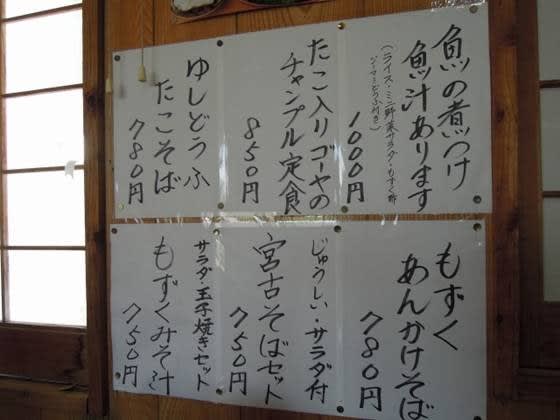 魚の煮つけ
魚汁あります
(ライス・ミニ野菜サラダ・もずく酢
ジーマミどうふ付き)
1000円
たこ入りゴーヤの
チャンプル定食
850円
ゆしどうふ
たこそば
780円
もずく
あんかけそば
780円
じゅうしい・サラダ付
宮古そばセット
750円
サラダ・玉子焼きセット
もずくみそ汁
750円